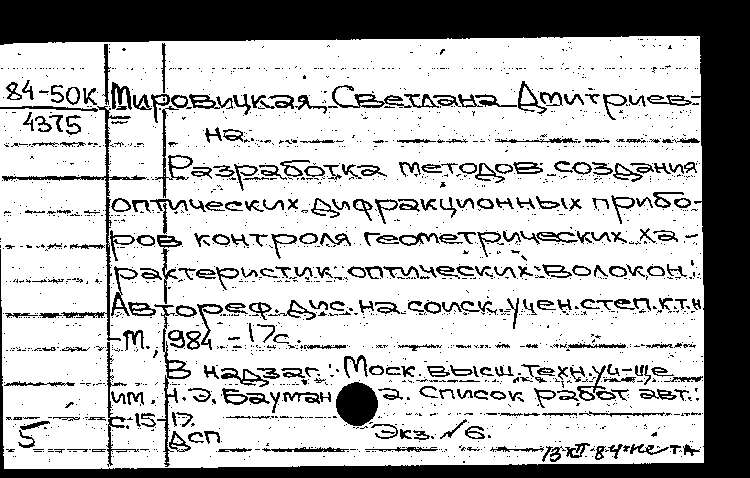 84-50К Мировицкая, Светлана Дмитриев-
4375 на.
Разработка методов создания
оптических дифракционных прибо-
ров контроля геометрических ха-
рактеристик оптических волокон:
Автореф. дис. на соиск. учен. степ. к.т.н.
-М., 984 - 17с.
В надзаг.: Моск. высш. техн. уч-ще
им. Н.Э. Бауман а. Список работ авт.:
с. 15-17.
5 ДСП Экз. № 6.